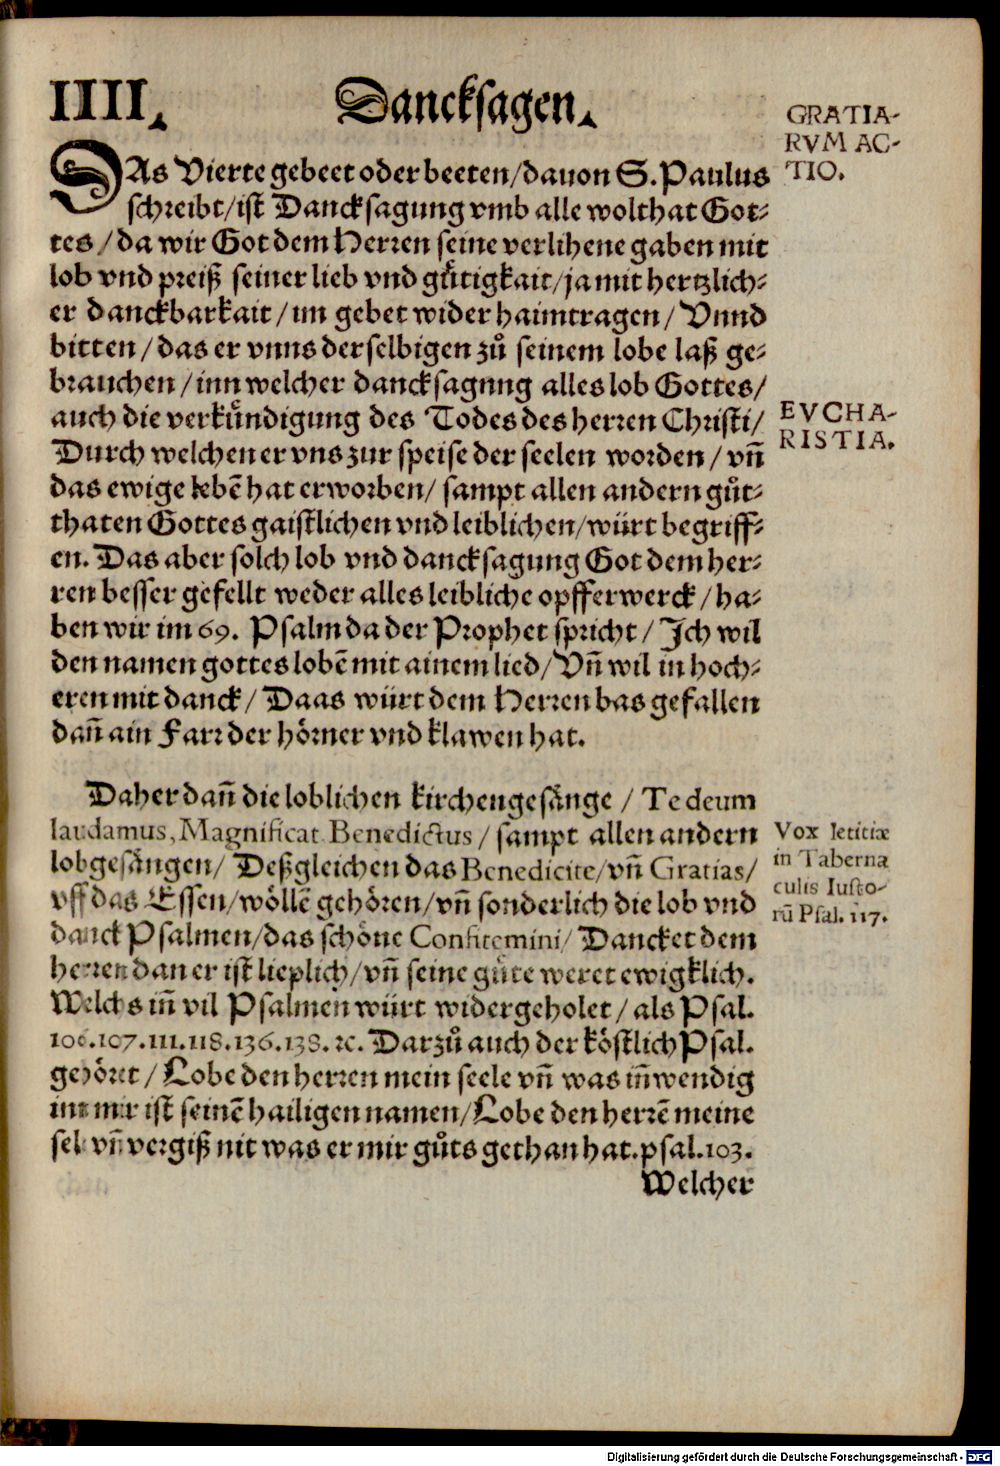 IIII. Dancksagen.
GRATIA-
RVM AC-
TIO.
DAs Vierte gebeet oder beeten/dauon S. Paulus
schreibt/ist Dancksagung vmb alle wolthat Got-
tes/da wir Got dem Herren seine verlihene gaben mit
lob vnd preiß seiner lieb vnd guͤtigkait/ja mit hertzlich-
er danckbarkait/im gebet wider haimtragen/Vnnd
bitten/das er vnns derselbigen zů seinem lobe laß ge-
brauchen/inn welcher dancksagung alles lob Gottes/
auch die verkuͤndigung des Todes des herren Christi/
EVCHA-
RISTIA.
Durch welchen er vns zur speise der seelen worden/vñ
das ewige lebẽ hat erworben/sampt allen andern gůt-
thaten Gottes gaistlichen vnd leiblichen/würt begriff-
en. Das aber solch lob vnd dancksagung Got dem her-
ren besser gefellt weder alles leibliche opfferwerck/ha-
ben wir im 69. Psalm da der Prophet spricht/Ich wil
den namen gottes lobẽ mit ainem lied/Vñ wil in hoch-
eren mit danck/Daas würt dem Herren bas gefallen
dañ ain Farr der hoͤrner vnd klawen hat.
Daher dañ die loblichen kirchengesaͤnge/Te deum
laudamus, Magnificat Benedictus/sampt allen andern
lobgesaͤngen/Deßgleichen das Benedicite/vñ Gratias/
vff das Essen/woͤllẽ gehoͤren/vñ sonderlich die lob vnd
danck Psalmen/das schoͤne Confitemini/Dancket dem
herren dan er ist lieplich/vñ seine guͤte weret ewigklich.
Vox letitiæ
in Taberna
culis Iusto-
rũ Psal. 117.
Welchs iñ vil Psalmen würt widergeholet/als Psal.
106.107.111.118.136.138.ꝛc. Darzů auch der koͤstlich Psal.
gehoͤret/Lobe den herren mein seele vñ was iñwendig
inn mir ist seinẽ hailigen namen/Lobe den herrẽ meine
sel vñ vergiß nit was er mir gůts gethan hat. psal.103.
Welcher
Digitalisierung gefördert durch die Deutsche Forschungsgemeinschaft - DFG